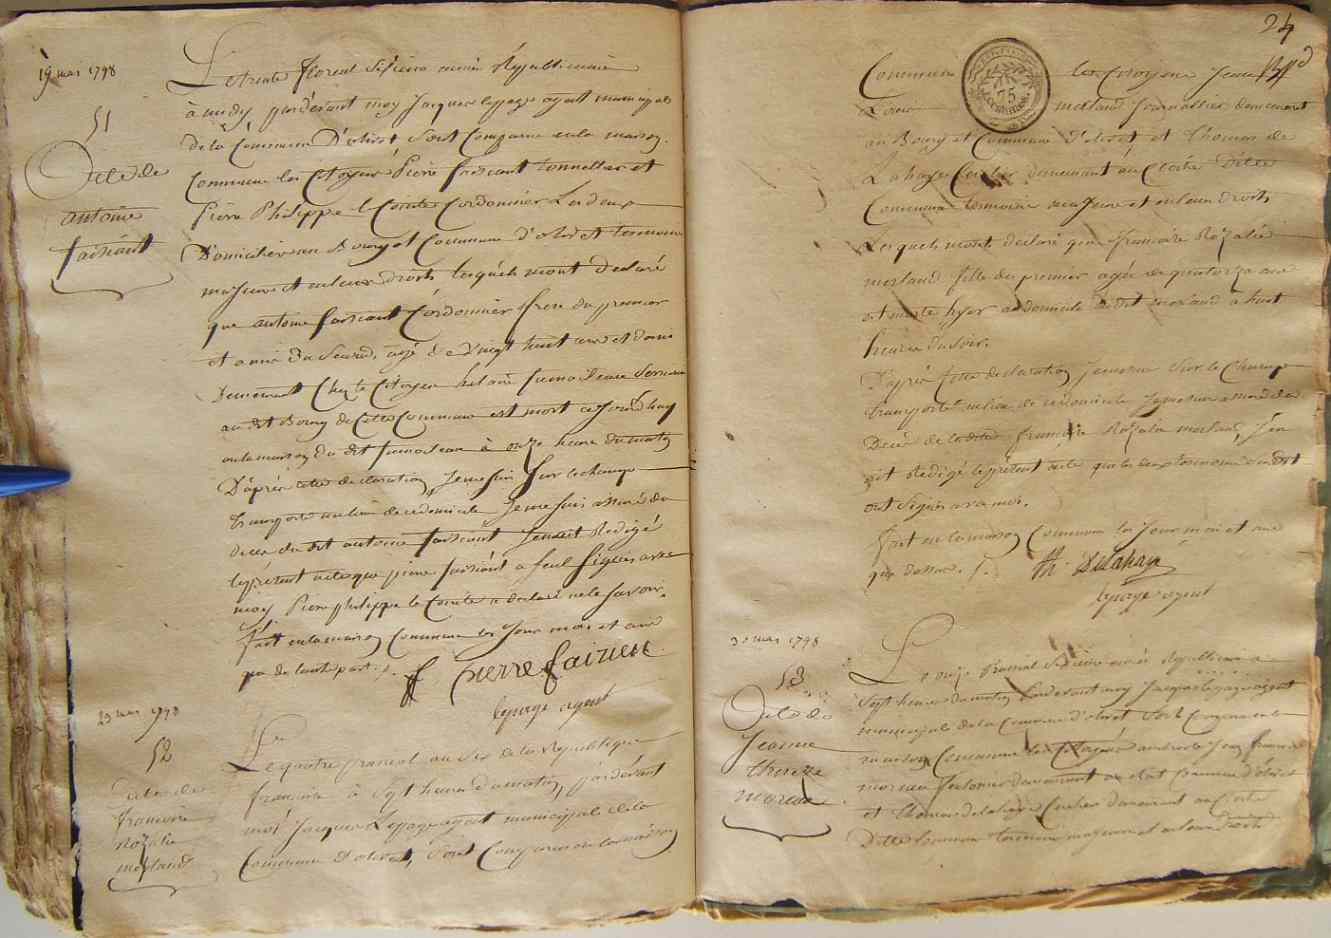 19 mars 1798
51
Décès de
antoine
faisiant
Le trente floreal Sixieme année Républicaine
à midy pardevant moy Jacques lepage agent municipal
de la Commune D'olivet Sont Comparue en la maison
Commune les Citoyens Pierre faisiant tonnellier et
Pierre Philippe le Comte Cordonnier Les deux
Domiciliés au Bourg et Commune d'olivet temoins
majeure et en leurs droits lesquels mont declaré
que antoine faisiant Cordonnier frere du premier
et amie du Second, agé de vingt huit ans et demi
Demeurant Chez le Citoyen
au dit Bourg de Cette Commune est mort cejourdhuy
en la maison du dit à onze heure du matin
D'après cette declaration, Je me suis Sur le champ
transporté au lieu de ce domicile Je me suis assuré du
deces du dit antoine faisiant Jen ait Redigé
le présent acte que pierre faisiant a Seul Signer avec
moy Pierre philippe le Comte a declaré ne le Savoir.
fait en la maison Commune les Jour mois et ans
que de lautre part.
Pierre fairien
lepage agent
23 mars 1798
52
acte de
francoise
rozalie
morland
Le quatre franéal an Six de la Republique
francaise à Sept heure du matin, pardevant
moi Jacques Lepage agent municipal de la
Commune d'olivet, Sont Comparue en la maison
24
Commune les Citoyens Jean Bpte
75
Centimes
morland Journallier demeurant
au Bourg et Commune d'olivet et Thomas de
Lahaye demeurant au Cloitre Dite
Commune temoins majeure et en leurs droits
Lesquels mont declaré que francoise Rozalie
morland fille du premier agée de quatorze ans
est morte hyer au domicile dudit morland à huit
heures du soir.
D'après cette declaration Je me suis Sur le Champ
transporté au lieu de ce domicile Je me suis assuré du
Décès de la ditte francoise Rozalie morland, J'en
ait Rédigé le présent acte que les deux temoins
ont Signés avec moi.
fait en la maison Commune les Jour mois et ans
que dessus.
th. Delahaye
lepage agent
30 mars 1798
53
Acte de
Jeanne
therese
moreau
Le onze franéal Sixieme année Republicaine à
Sept heures du matin Pardevant moy Jacques Lepage agent
municipal de la Commune d'olivet Sont Comparue en la
maison Commune les Citoyens Jean francois
moreau demeurant Commune d'olivet
et Thomas delahaye demeurant au Cloitre
Ditte Commune temoins majeure et en leurs droits